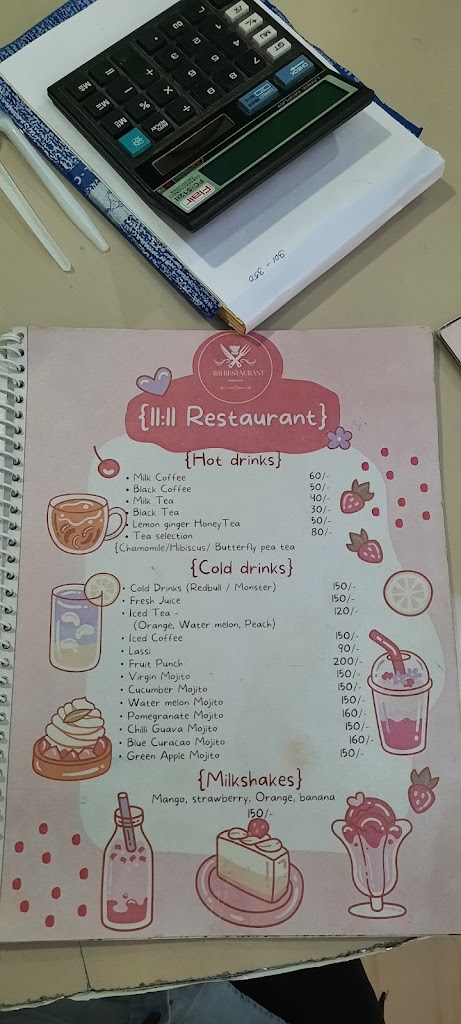 √x
+/-
MU
GT
Flair
FC-512II
301 - 350
11:11 RESTAURANT
{11:11 Restaurant}
{Hot drinks}
• Milk Coffee 60/-
• Black Coffee 50/-
• Milk Tea 40/-
• Black Tea 30/-
• Lemon ginger HoneyTea 50/-
• Tea selection 80/-
{Chamomile/Hibiscus/ Butterfly pea tea
{Cold drinks}
• Cold Drinks (Redbull / Monster) 150/-
• Fresh Juice 150/-
• Iced Tea - 120/-
(Orange, Water melon, Peach)
• Iced Coffee 150/-
• Lassi 90/-
• Fruit Punch 200/-
• Virgin Mojito 150/-
• Cucumber Mojito 150/-
• Water melon Mojito 150/-
• Pomegranate Mojito 160/-
• Chilli Guava Mojito 150/-
• Blue Curacao Mojito 160/-
• Green Apple Mojito 150/-
{Milkshakes}
Mango, strawberry, Orange, banana
150/-